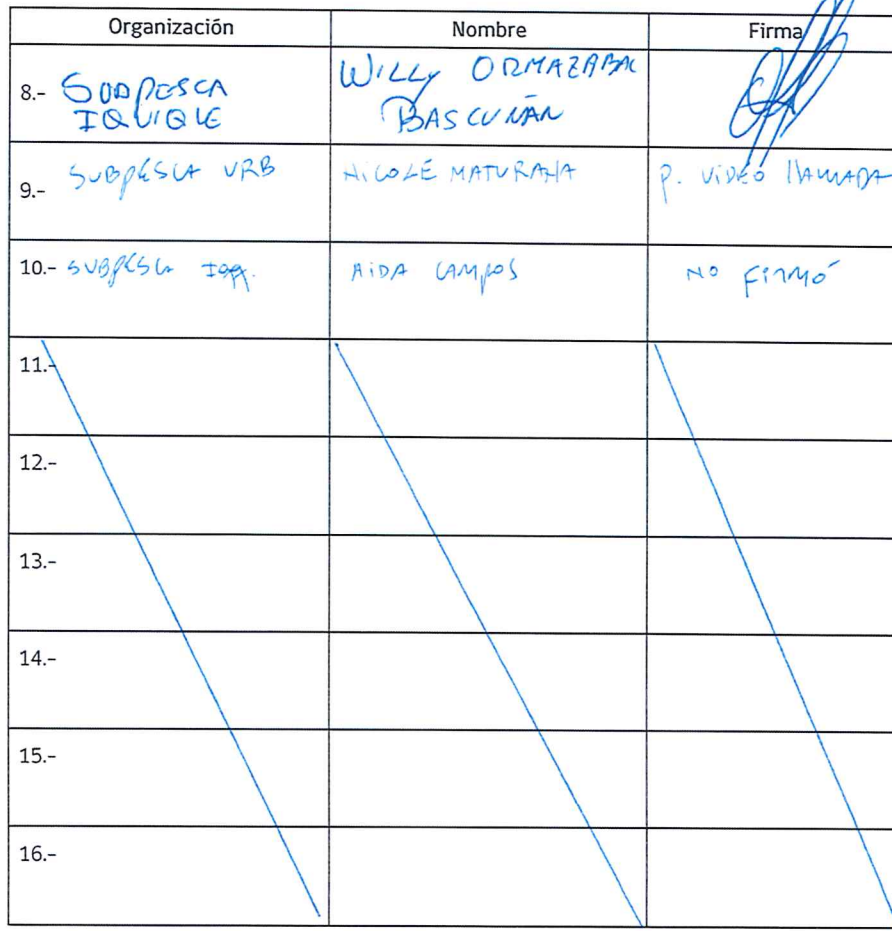 Organización Nombre Firma
8.- SUBPESCA IQUIQUE WILLY ORMAZABAL BASCUÑAN
9.- SUBPESCA VRB NICOLE MATURANA P. VIDEO LLAMADA
10.- SUBPESCA IQQ. AIDA CAMPOS NO FIRMÓ
11.-
12.-
13.-
14.-
15.-
16.-